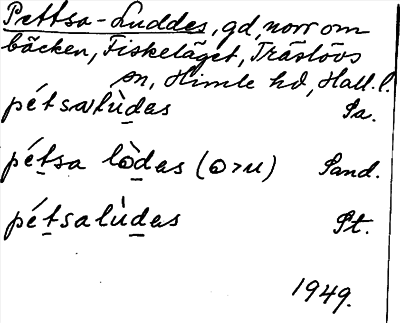 Pettsa-Luddes, gd, norr om
bäcken, Fiskeläget, Träslövs
sn, Himle hd, Hall. l.
pét̲salùd̲as Sa.
pét̲sa lòd̲as (o>u) Sand.
pét̲salùd̲as St.
1949.